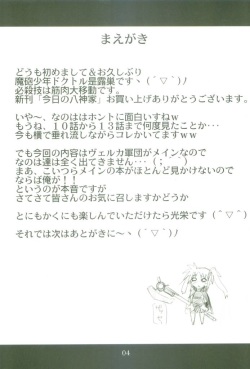 まえがき
どうも初めまして&お久しぶり
魔砲少年ドクトル是露巣ですヽ(´▽`)ﾉ
必殺技は筋肉大移動です。
新刊「今日の八神家」お買い上げありがとうございます。
いや～、なのははホントに面白いすねw
もうね、10話から13話まで何度見たことか･･･
今も横で垂れ流しながらコレかいてますw
でも今回の内容はヴェルカ軍団がメインなので
なのは達は全く出てきません･･･(；´▽`)
まあ、こいつらメインの本がほとんど見かけないので
ならば俺が！！
というのが本音です
さてさて皆さんのお気に召しますかどうか
とにもかくにも楽しんでいただけたら光栄です(´▽`)
それでは次はあとがきに～ヽ(´▽`)ﾉ
04